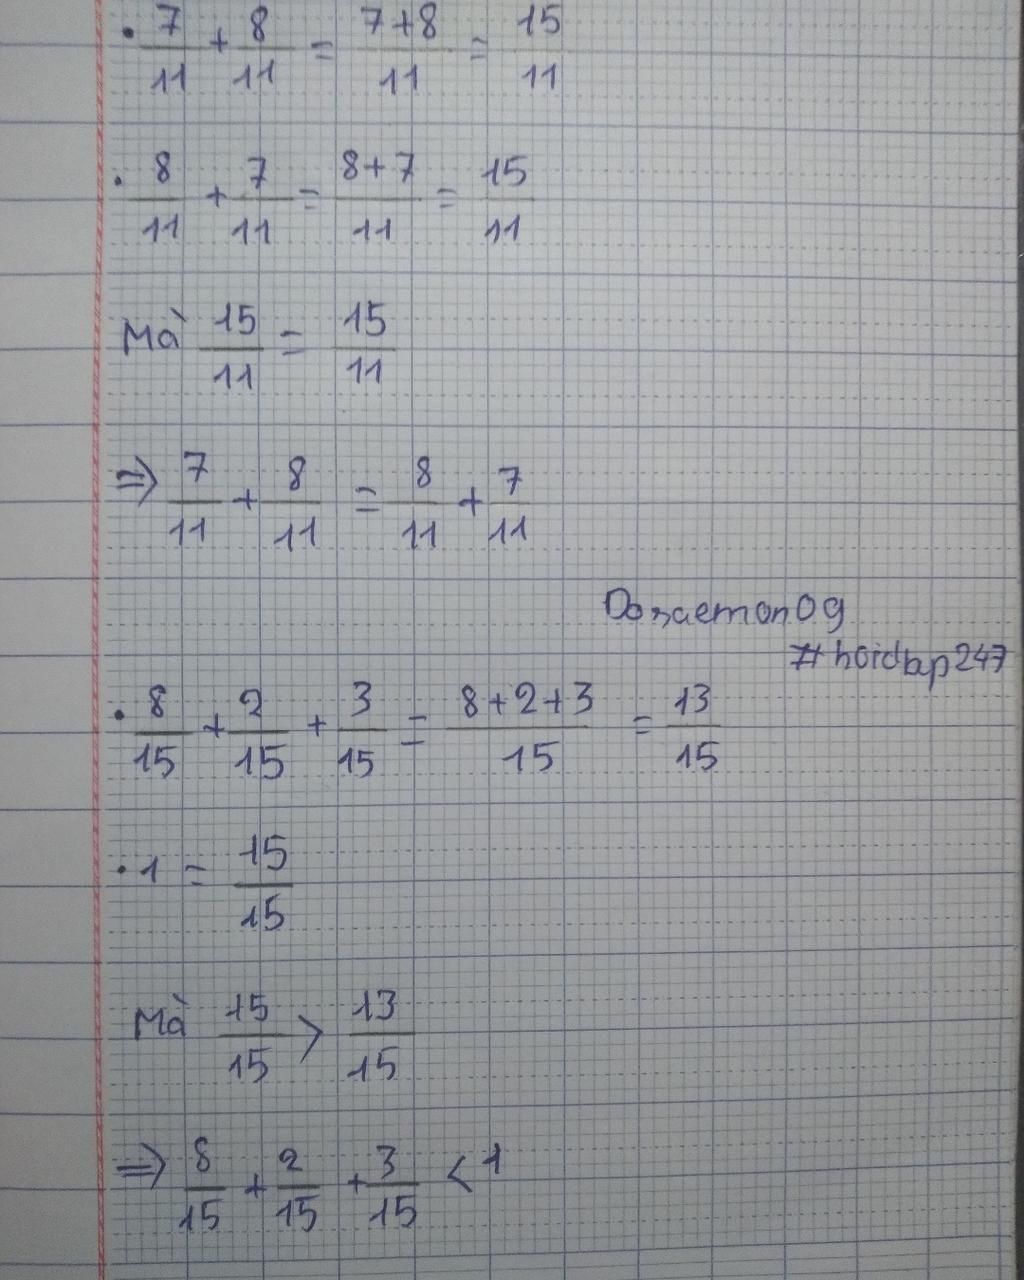 • 7/11 + 8/11 = 7+8/11 = 15/11
• 8/11 + 7/11 = 8+7/11 = 15/11
Mà 15/11 = 15/11
⇒ 7/11 + 8/11 = 8/11 + 7/11
Doraemon09
#hoidap247
• 8/15 + 2/15 + 3/15 = 8+2+3/15 = 13/15
• 1 = 15/15
Mà 15/15 > 13/15
⇒ 8/15 + 2/15 + 3/15 < 1